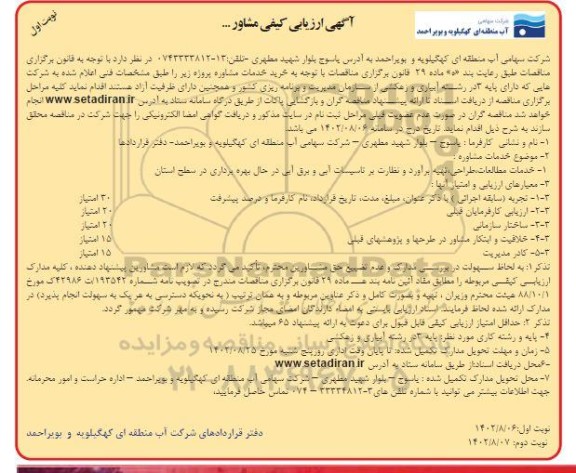 شرکت سهامی
آب منطقه ای کهگیلویه و بویراحمد
آگهی ارزیابی کیفی مشاور ...
نوبت اول
شرکت سهامی آب منطقه ای کهگیلویه و بویراحمد به آدرس یاسوج بلوار شهید مطهری -تلفن:۱۳-۰۷۴۳۳۳۳۸۱۲ در نظر دارد با توجه به قانون برگزاری
مناقصات طبق رعایت بند «ه» ماده ۲۹ قانون برگزاری مناقصات با توجه به خرید خدمات مشاوره پروژه زیر را طبق مشخصات فنی اعلام شده به شرکت
هایی که دارای پایه ۳در رشسته آبیاری و زهکشی از سازمان مدیریت و برنامه ریزی کشور و همچنین دارای ظرفیت آزاد هستند اقدام نماید کلیه مراحل
برگزاری مناقصه از دریافت اسناد تا ارائه پیشنهاد مناقصه گران و بازگشایی پاکات از طریق درگاه سامانه ستاد به آدرس www.setadiran.ir انجام
خواهد شد مناقصه گران در صورت عدم عضویت قبلی مراحل ثبت نام در سایت مذکور و دریافت گواهی امضا الکترونیکی را جهت شرکت در مناقصه محقق
سازند به شرح ذیل اقدام نمایند. تاریخ درج در سامانه ۱۴۰۲/۰۸/۰۶ می باشد.
۱- نام و نشانی کارفرما : یاسوج – بلوار شهید مطهری – شرکت سهامی آب منطقه ای کهگیلویه و بویراحمد- دفتر قراردادها
۲- موضوع خدمات مشاوره :
۱- خدمات مطالعات،طراحی،تهیه برآورد و نظارت بر تاسیسات آبی و برق آبی در حال بهره برداری در سطح استان
۳- معیارهای ارزیابی و امتیاز آنها :
۳-۱- تجربه (سابقه اجرائی ) با ذکر عنوان، مبلغ، مدت، تاریخ قرارداد، نام کارفرما و درصد پیشرفت ۳۰ امتیاز
۳-۲- ارزیابی کارفرمایان قبلی ۲۰ امتیاز
۳-۳- ساختار سازمانی ۲۰ امتیاز
۳-۴- خلاقیت و ابتکار مشاور در طرحها و پژوهشهای قبلی ۱۵ امتیاز
۳-۵- کادر مدیریت ۱۵ امتیاز
تذکر۱: به لحاظ سهولت در بررسی مدارک و عدم تضییع حق مشاورین محترم، تأکید می گردد که لازم است مشاورین پیشنهاد دهنده ، کلیه مدارک
ارزیابی کیفی مربوطه را مطابق مفاد آئین نامه بند ماده ۲۹ قانون برگزاری مناقصات مندرج در تصویب نامه شماره ۱۹۳۵۴۲/ت۴۲۹۸۶ک مورخ
۸۸/۱۰/۱ هیئت محترم وزیران ، تهیه و بصورت کامل و ذکر عناوین مربوطه و به همان ترتیب ( به نحویکه دسترسی به هر یک به سهولت انجام پذیرد) در
مدارک ارائه شده لحاظ فرمایند. اسناد ارزیابی بایستی به امضاء دارندگان امضای مجاز شرکت رسیده و به مهر شرکت ممهور گردد.
تذکر ۲: حداقل امتیاز ارزیابی کیفی قابل قبول برای دعوت به ارائه پیشنهاد ۶۵ میباشد.
۴- پایه و رشته کاری مورد نظر: پایه ۳در رشته آبیاری و زهکشی
۵- زمان و مهلت تحویل مدارک تکمیل شده: تا پایان وقت اداری روزپنج شنبه مورخ ۱۴۰۲/۰۸/۲۵
۶-محل دریافت اسناد:از طریق سامانه ستاد به آدرس www.setadiran.ir
۷- محل تحویل مدارک تکمیل شده : یاسوج – بلوار شهید مطهری – شرکت سهامی آب منطقه ای کهگیلویه و بویراحمد – اداره حراست و امور محرمانه.
جهت اطلاعات بیشتر می توانید با شماره تلفن های۳-۳۳۳۳۴۸۱۲ – ۰۷۴ تماس حاصل فرمایید.
نوبت اول:۱۴۰۲/۰۸/۰۶
نوبت دوم: ۱۴۰۲/۰۸/۰۷
دفتر قراردادهای شرکت آب منطقه ای کهگیلویه و بویراحمد